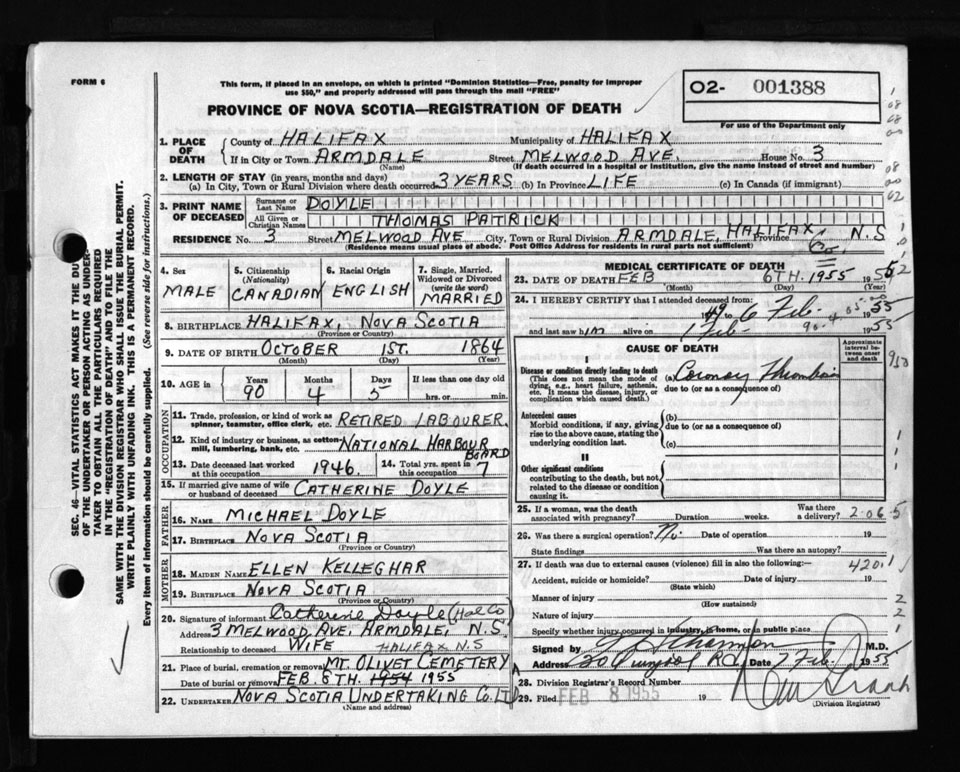 FORM 6
This form, if placed in an envelope, on which is printed "Dominion Statistics—Free, penalty for improper
use $50," and properly addressed will pass through the mail "FREE"
PROVINCE OF NOVA SCOTIA—REGISTRATION OF DEATH
O2- 001388
For use of the Department only
1. PLACE OF DEATH
County of HALIFAX Municipality of HALIFAX
If in City or Town ARMDALE Street MELWOOD AVE. House No. 3
(Name) (If death occurred in a hospital or institution, give the name instead of street and number)
2. LENGTH OF STAY (in years, months and days)
(a) In City, Town or Rural Division where death occurred 3 YEARS (b) In Province LIFE (c) In Canada (if immigrant)
3. PRINT NAME OF DECEASED
Surname or Last Name DOYLE
All Given or Christian Names THOMAS PATRICK
RESIDENCE No. 3 Street MELWOOD AVE City, Town or Rural Division ARMDALE, HALIFAX Province N.S
(Residence means usual place of abode. Post Office Address for residents in rural parts not sufficient)
4. Sex
MALE
5. Citizenship (Nationality)
CANADIAN
6. Racial Origin
ENGLISH
7. Single, Married, Widowed or Divorced (write the word)
MARRIED
8. BIRTHPLACE HALIFAX, NOVA SCOTIA
(Province or Country)
9. DATE OF BIRTH OCTOBER 1ST. 1864
(Month) (Day) (Year)
10. AGE in
Years Months Days If less than one day old
90 4 5 hrs. or min.
OCCUPATION
11. Trade, profession, or kind of work as
spinner, teamster, office clerk, etc. RETIRED LABOURER.
12. Kind of industry or business, as cotton-
mill, lumbering, bank, etc. NATIONAL HARBOUR BOARD
13. Date deceased last worked
at this occupation 1946.
14. Total yrs. spent in
this occupation 7
15. If married give name of wife
or husband of deceased CATHERINE DOYLE
FATHER
16. NAME MICHAEL DOYLE
17. BIRTHPLACE NOVA SCOTIA
(Province or Country)
MOTHER
18. MAIDEN NAME ELLEN KELLEGHAR
19. BIRTHPLACE NOVA SCOTIA
(Province or Country)
20. Signature of informant Catherine Doyle (Hal Co)
Address 3 MELWOOD AVE, ARMDALE, N.S.
Relationship to deceased WIFE HALIFAX N.S
21. Place of burial, cremation or removal MT. OLIVET CEMETERY
Date of burial or removal FEB. 8TH. 1954 1955
22. UNDERTAKER NOVA SCOTIA UNDERTAKING CO. LTD
(Name and address)
MEDICAL CERTIFICATE OF DEATH
23. DATE OF DEATH FEB 6TH. 1955 1955
(Month) (Day)
24. I HEREBY CERTIFY that I attended deceased from:
49 to 6 Feb. 1955
and last saw him alive on 1 Feb 1955
CAUSE OF DEATH
Approximate interval between onset and death
I
Disease or condition directly leading to death
(This does not mean the mode of
dying, e.g., heart failure, asthenia,
etc. It means the disease, injury, or
complication which caused death.)
(a) Coronary Thrombosis
due to (or as a consequence of)
Antecedent causes
Morbid conditions, if any, giving
rise to the above cause, stating the
underlying condition last.
(b)
due to (or as a consequence of)
(c)
II
Other significant conditions
contributing to the death, but not
related to the disease or condition
causing it.
25. If a woman, was the death
associated with pregnancy? Duration weeks. Was there a delivery? 2-06 5
26. Was there a surgical operation? No. Date of operation 19
State findings Was there an autopsy?
27. If death was due to external causes (violence) fill in also the following: 420.1
Accident, suicide or homicide? Date of injury 19
(State which)
Manner of injury
(How sustained)
Nature of injury
Specify whether injury occurred in industry, in home, or in public place
Signed by M.D.
Address Date 7 Feb. 1955
28. Division Registrar's Record Number
29. Filed FEB 8 1955 19
(Division Registrar)
SEC. 46—VITAL STATISTICS ACT MAKES IT THE DUTY
OF THE UNDERTAKER OR PERSON ACTING AS UNDER-
TAKER TO OBTAIN ALL THE PARTICULARS REQUIRED
IN THE "REGISTRATION OF DEATH" AND TO FILE THE
SAME WITH THE DIVISION REGISTRAR WHO SHALL ISSUE THE BURIAL PERMIT.
WRITE PLAINLY WITH UNFADING INK. THIS IS A PERMANENT RECORD.
Every item of information should be carefully supplied. (See reverse side for instructions.)